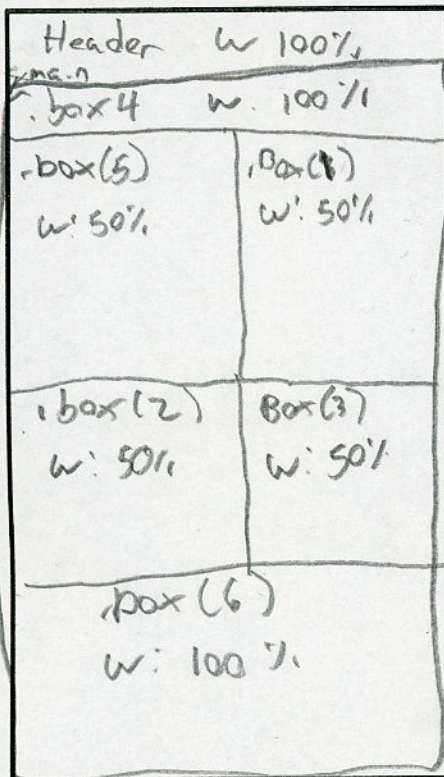 Header w 100%
<main
.box4 w. 100%
.box(5)
w: 50%
.Box(1)
w: 50%
.box(2)
w: 50%
Box(3)
w: 50%
.box(6)
w: 100%